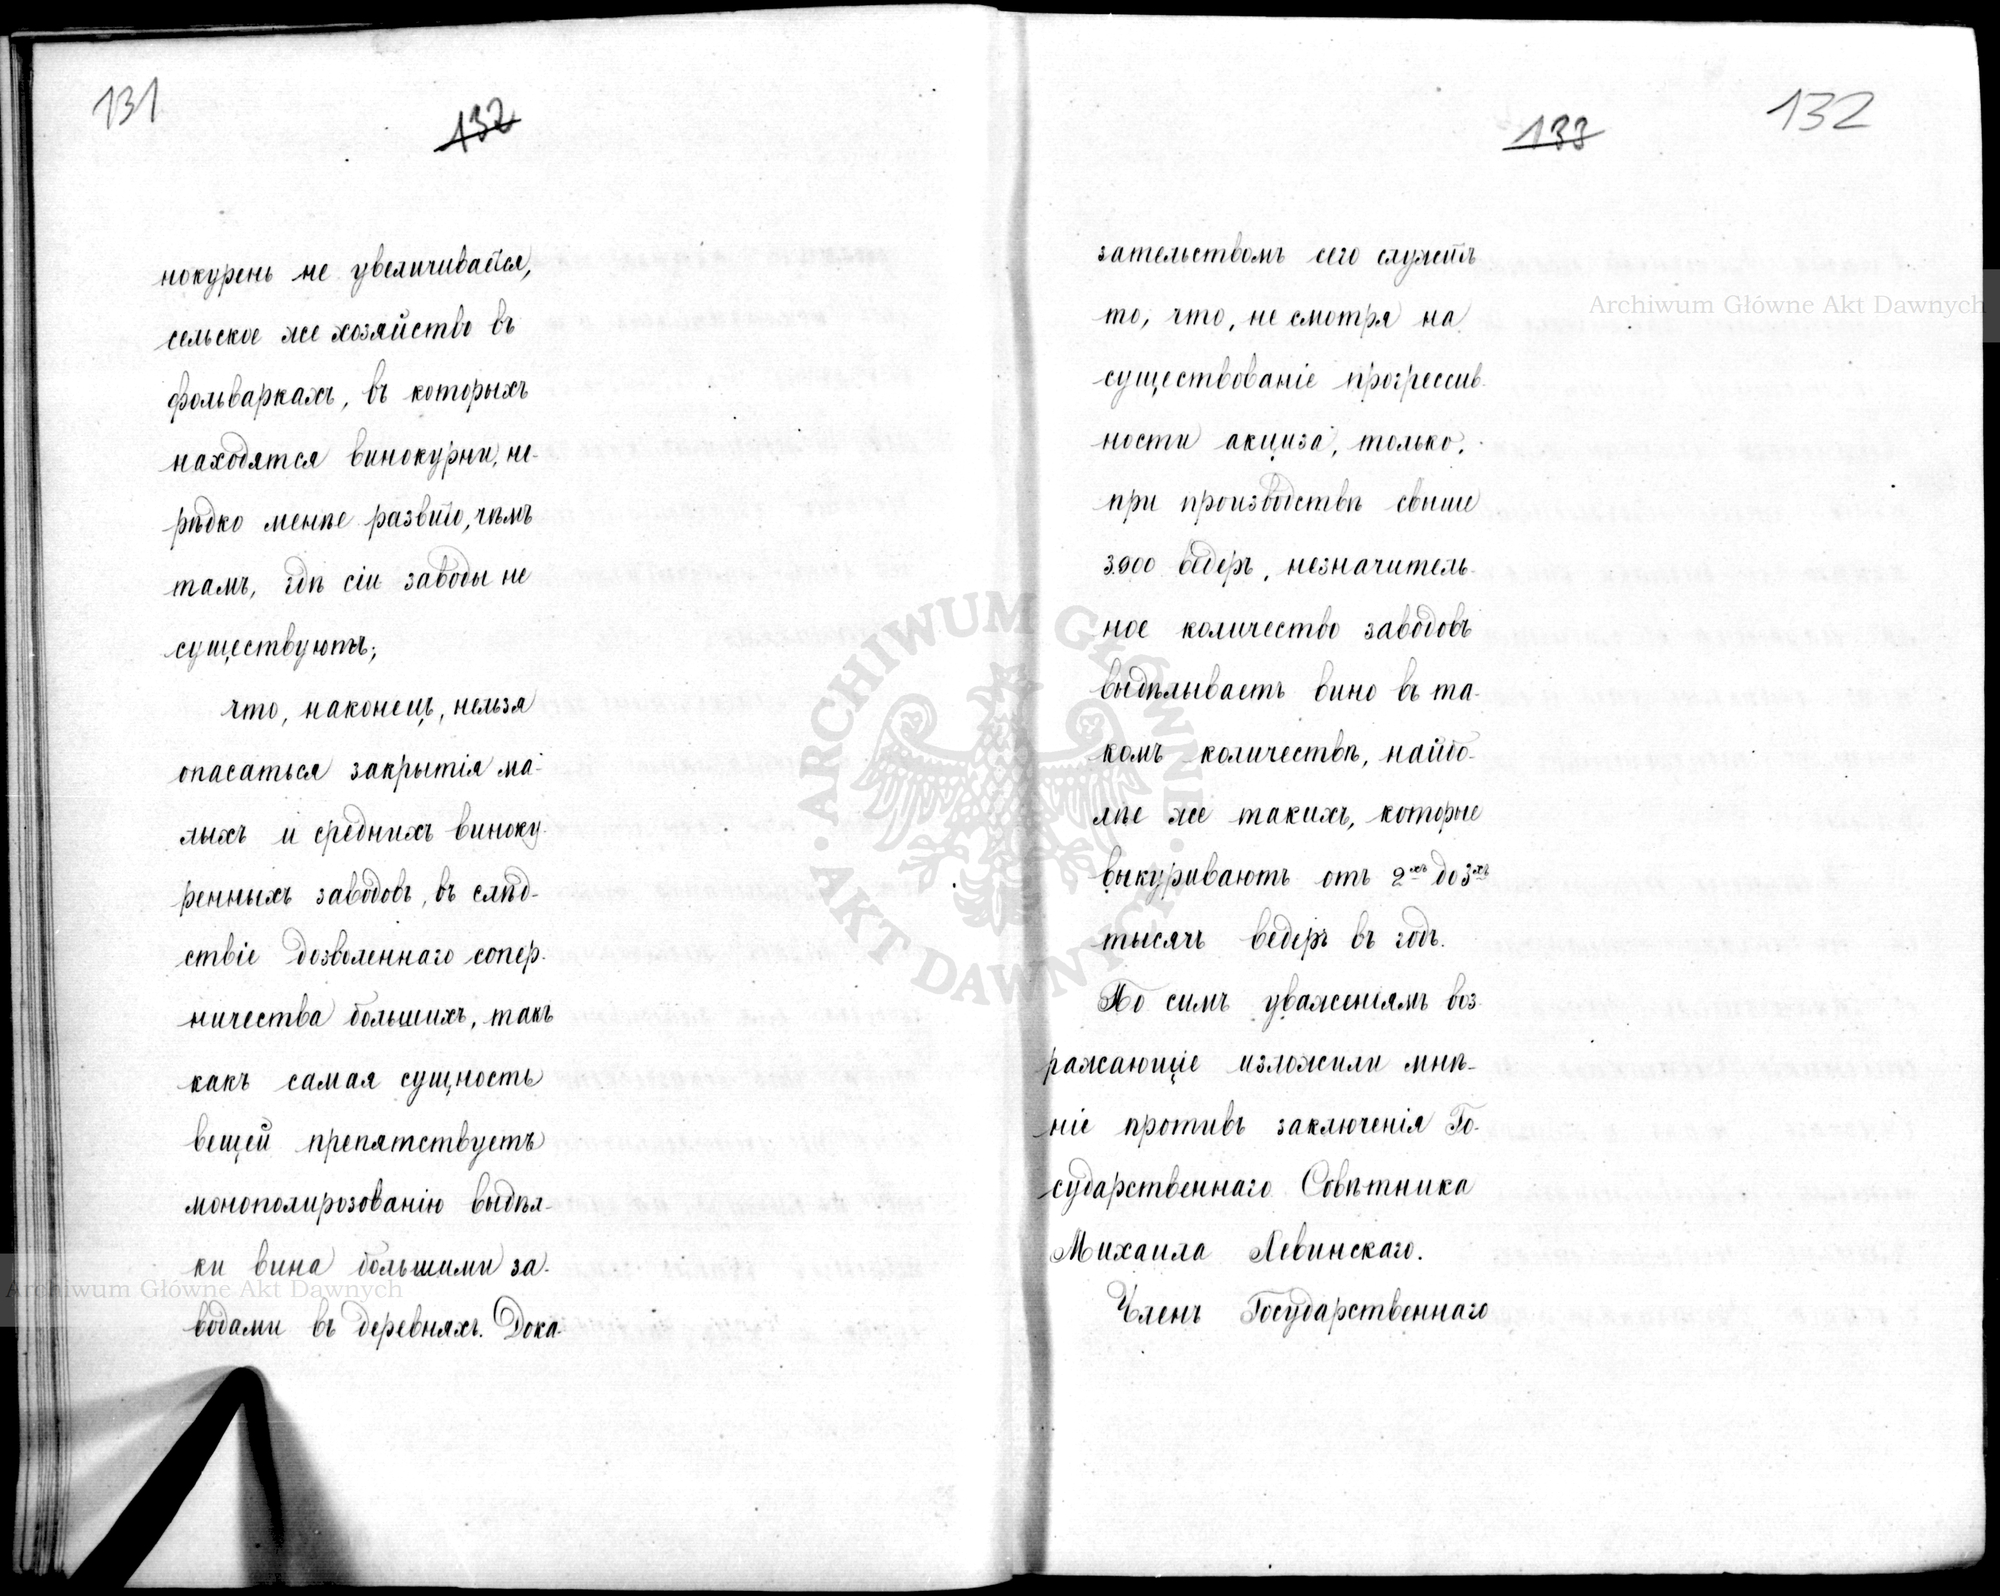 131
132
нокурень не увеличивается,
сельское же хозяйство въ
фольваркахъ, въ которыхъ
находятся винокурни, не-
рѣдко менѣе развито, чѣмъ
тамъ, гдѣ сіи заводы не
существуютъ;
что, наконецъ, нельзя
опасаться закрытія ма-
лыхъ и среднихъ виноку-
ренныхъ заводовъ, въ слѣд-
ствіе дозволеннаго сопер-
ничества большихъ, такъ
какъ самая сущность
вещей препятствуетъ
монополирозованію выдѣл-
ки вина большими за-
водами въ деревняхъ. Дока-
132
133
зательствомъ сего служитъ
то, что, не смотря на
существованіе прогрессив-
ности акциза, только,
при производствѣ свыше
3000 ведеръ, незначитель-
ное количество заводовъ
выдѣлываетъ вино въ та-
комъ количествѣ, наибо-
лѣе же такихъ, которые
выкуриваютъ отъ 2хъ до 3хъ
тысячъ ведеръ въ годъ.
По симъ уваженіямъ воз-
ражающіе изложили мнѣ-
ніе противъ заключенія Го-
сударственнаго Совѣтника
Михаила Левинскаго.
Членъ Государственнаго
Archiwum Główne Akt Dawnych
Archiwum Główne Akt Dawnych
ARCHIWUM GŁÓWNE
AKT DAWNYCH